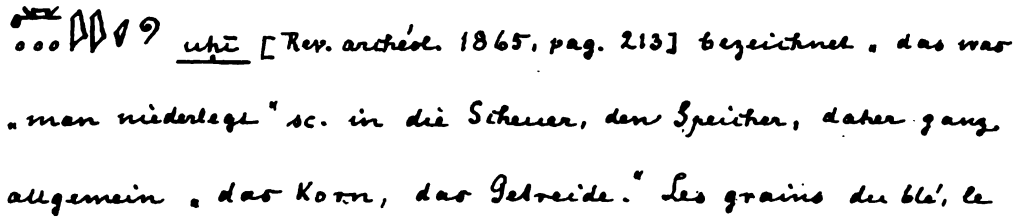 uḥī [Rev. archéol. 1865, pag. 213] bezeichnet „das was
„man niederlegt“ sc. in die Scheuer, den Speicher, daher ganz
allgemein „das Korn, das Getreide.“ Les grains du blé, le